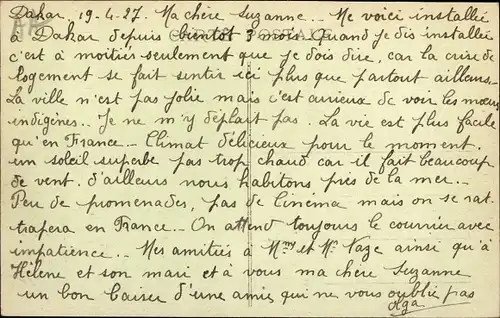 Dakar, 19.4.27. Ma chère Suzanne.. Me voici installée
à Dakar depuis bientôt 3 mois. Quand je dis installée
c'est à moitiés seulement que je dois dire, car la crise de
logement se fait sentir ici plus que partout ailleurs..
La ville n'est pas jolie mais c'est curieux de voir les mœurs
indigènes.. Je ne m'y déplait pas. La vie est plus facile
qu'en France.. Climat délicieux pour le moment.
un soleil superbe pas trop chaud car il fait beaucoup
de vent. d'ailleurs nous habitons près de la mer..
Peu de promenades, pas de Cinéma mais on se rat-
trapera en France.. On attend toujours le courrier avec
impatience.. Mes amitiés à Mme et Mr ainsi qu'à
Hélène et son mari et à vous ma chère Suzanne
un bon baiser d'une amie qui ne vous oublie pas
Olga